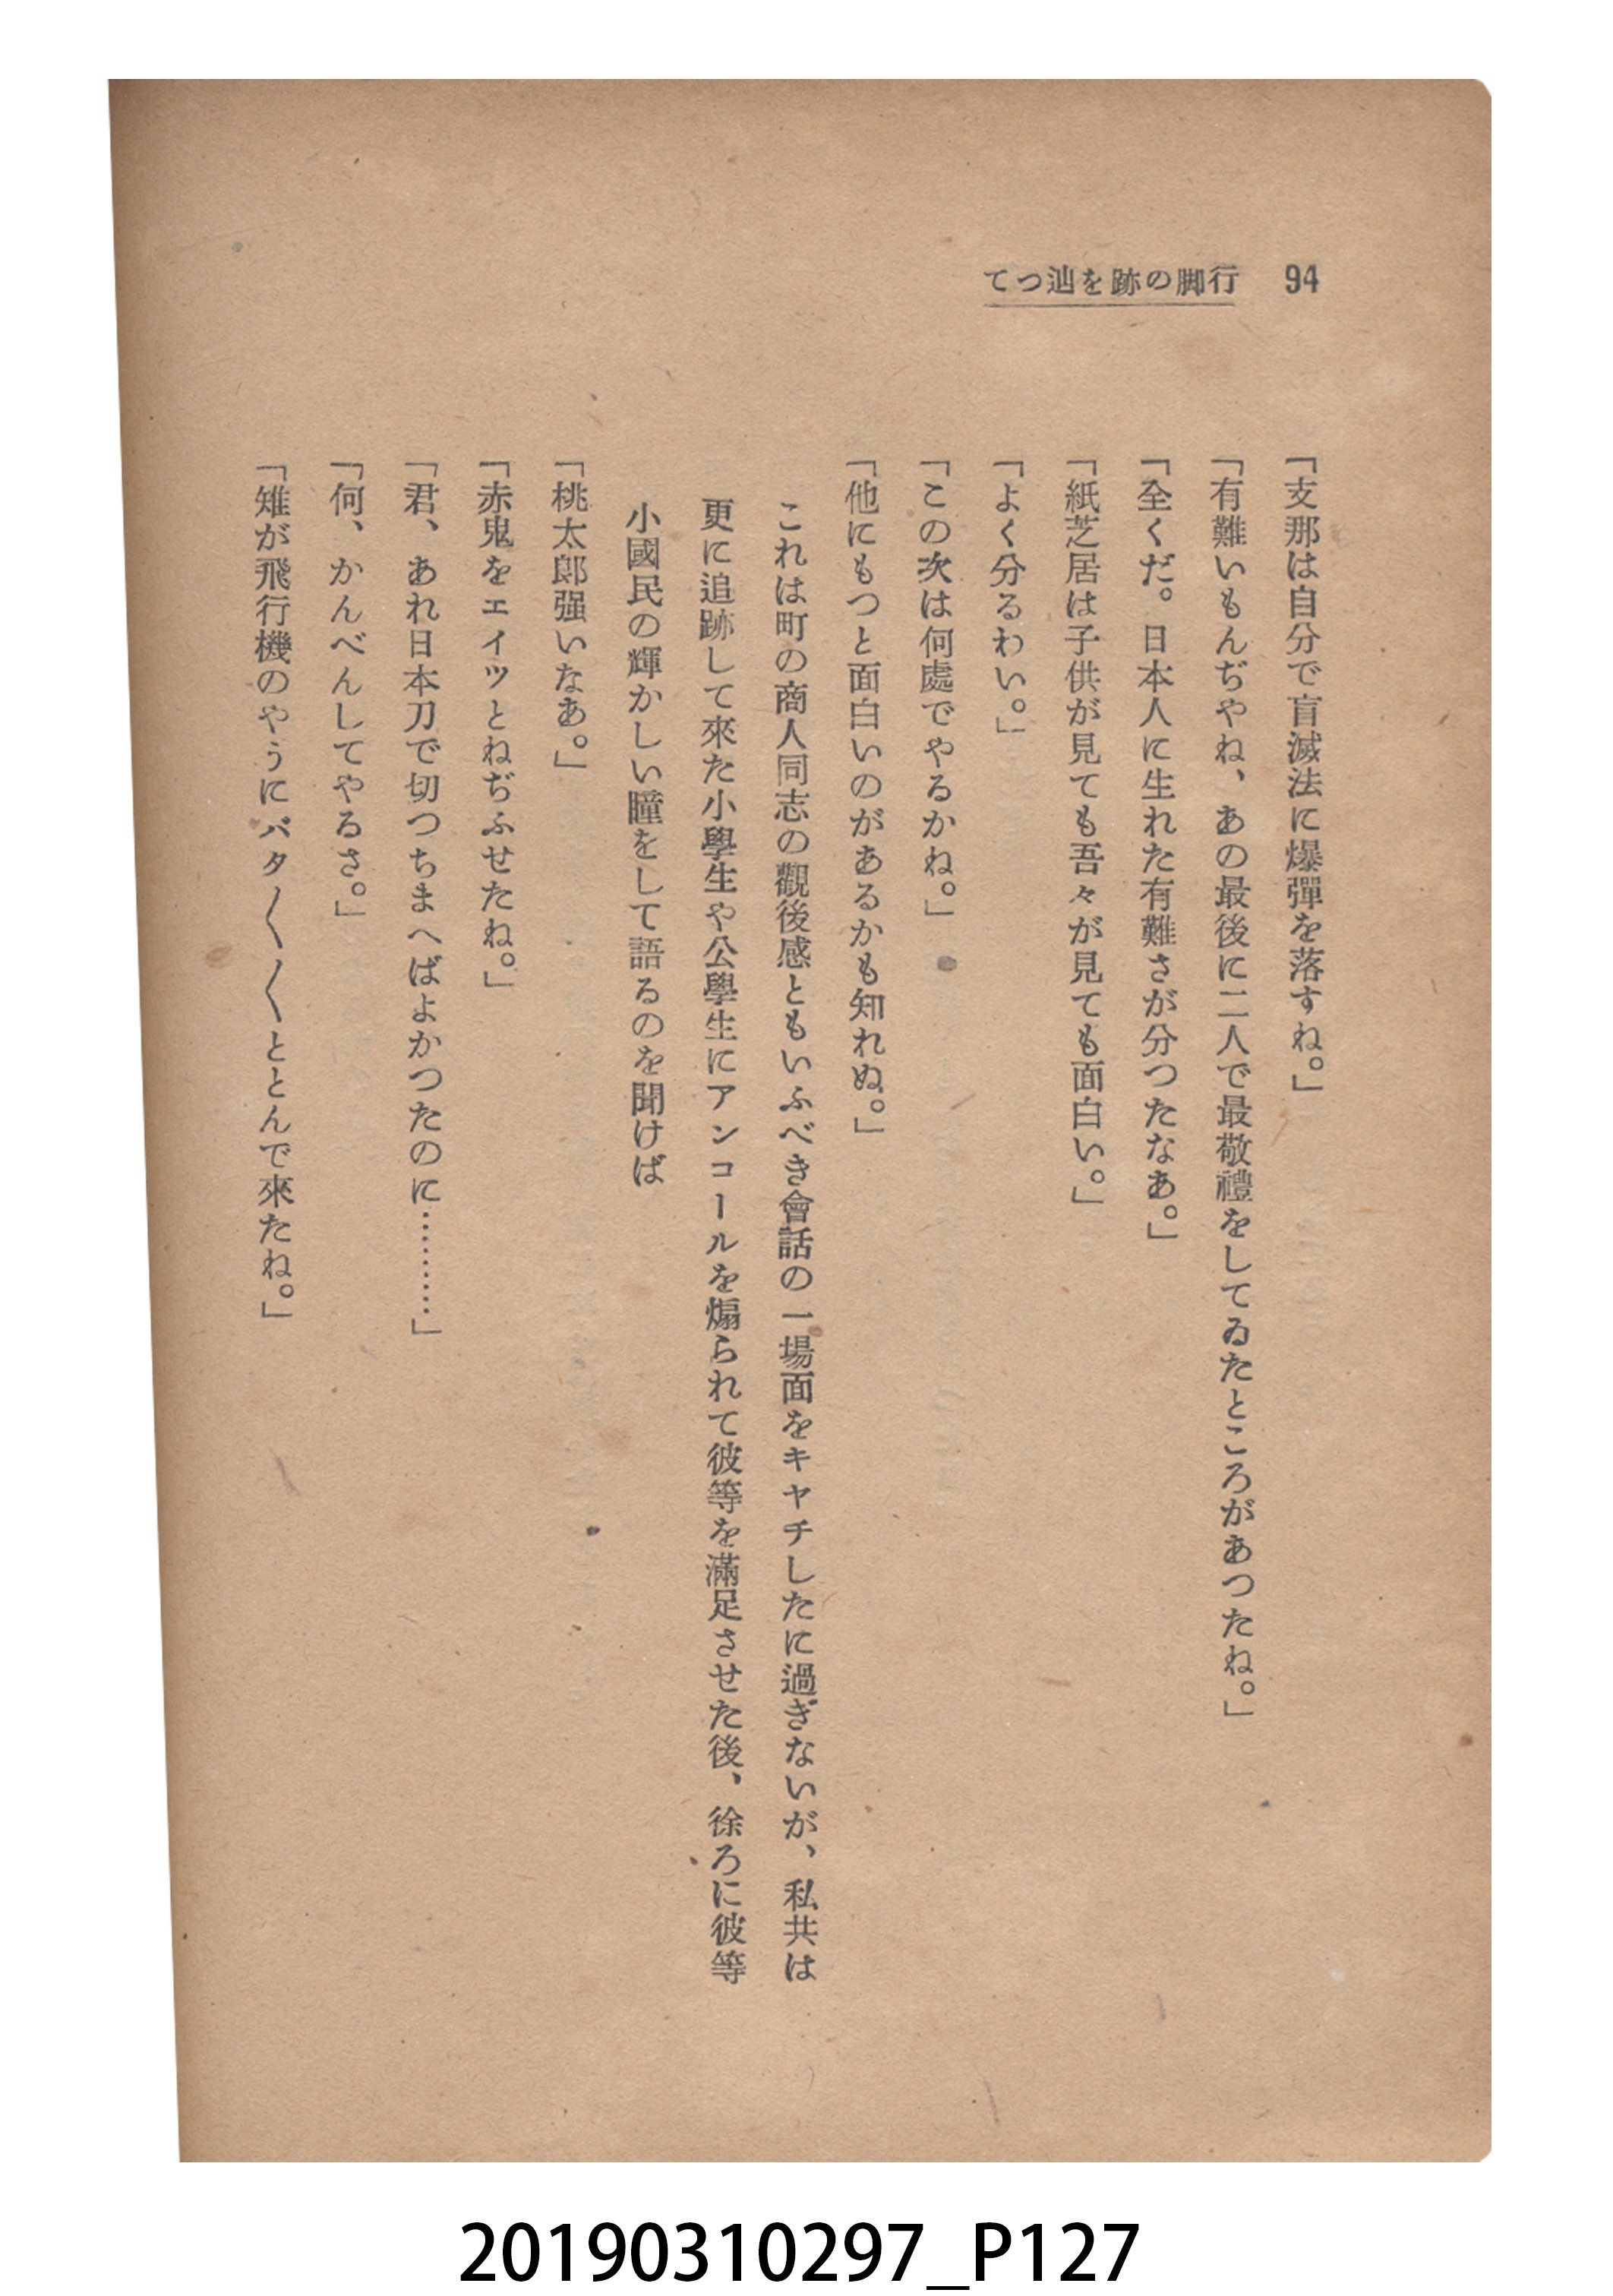 94 行脚の跡を辿つて
「支那は自分で盲滅法に爆彈を落すね。」
「有難いもんぢやね、あの最後に二人で最敬禮をしてゐたところがあつたね。」
「全くだ。日本人に生れた有難さが分つたなあ。」
「紙芝居は子供が見ても吾々が見ても面白い。」
「よく分るわい。」
「この次は何處でやるかね。」
「他にもつと面白いのがあるかも知れぬ。」
これは町の商人同志の觀後感ともいふべき會話の一場面をキヤチしたに過ぎないが、私共は
更に追跡して來た小學生や公學生にアンコールを煽られて彼等を滿足させた後、徐ろに彼等
小國民の輝かしい瞳をして語るのを聞けば
「桃太郎强いなあ。」
「赤鬼をエイツとねぢふせたね。」
「君、あれ日本刀で切つちまへばよかつたのに………」
「何、かんべんしてやるさ。」
「雉が飛行機のやうにバタ〱〱ととんで來たね。」
20190310297_P127